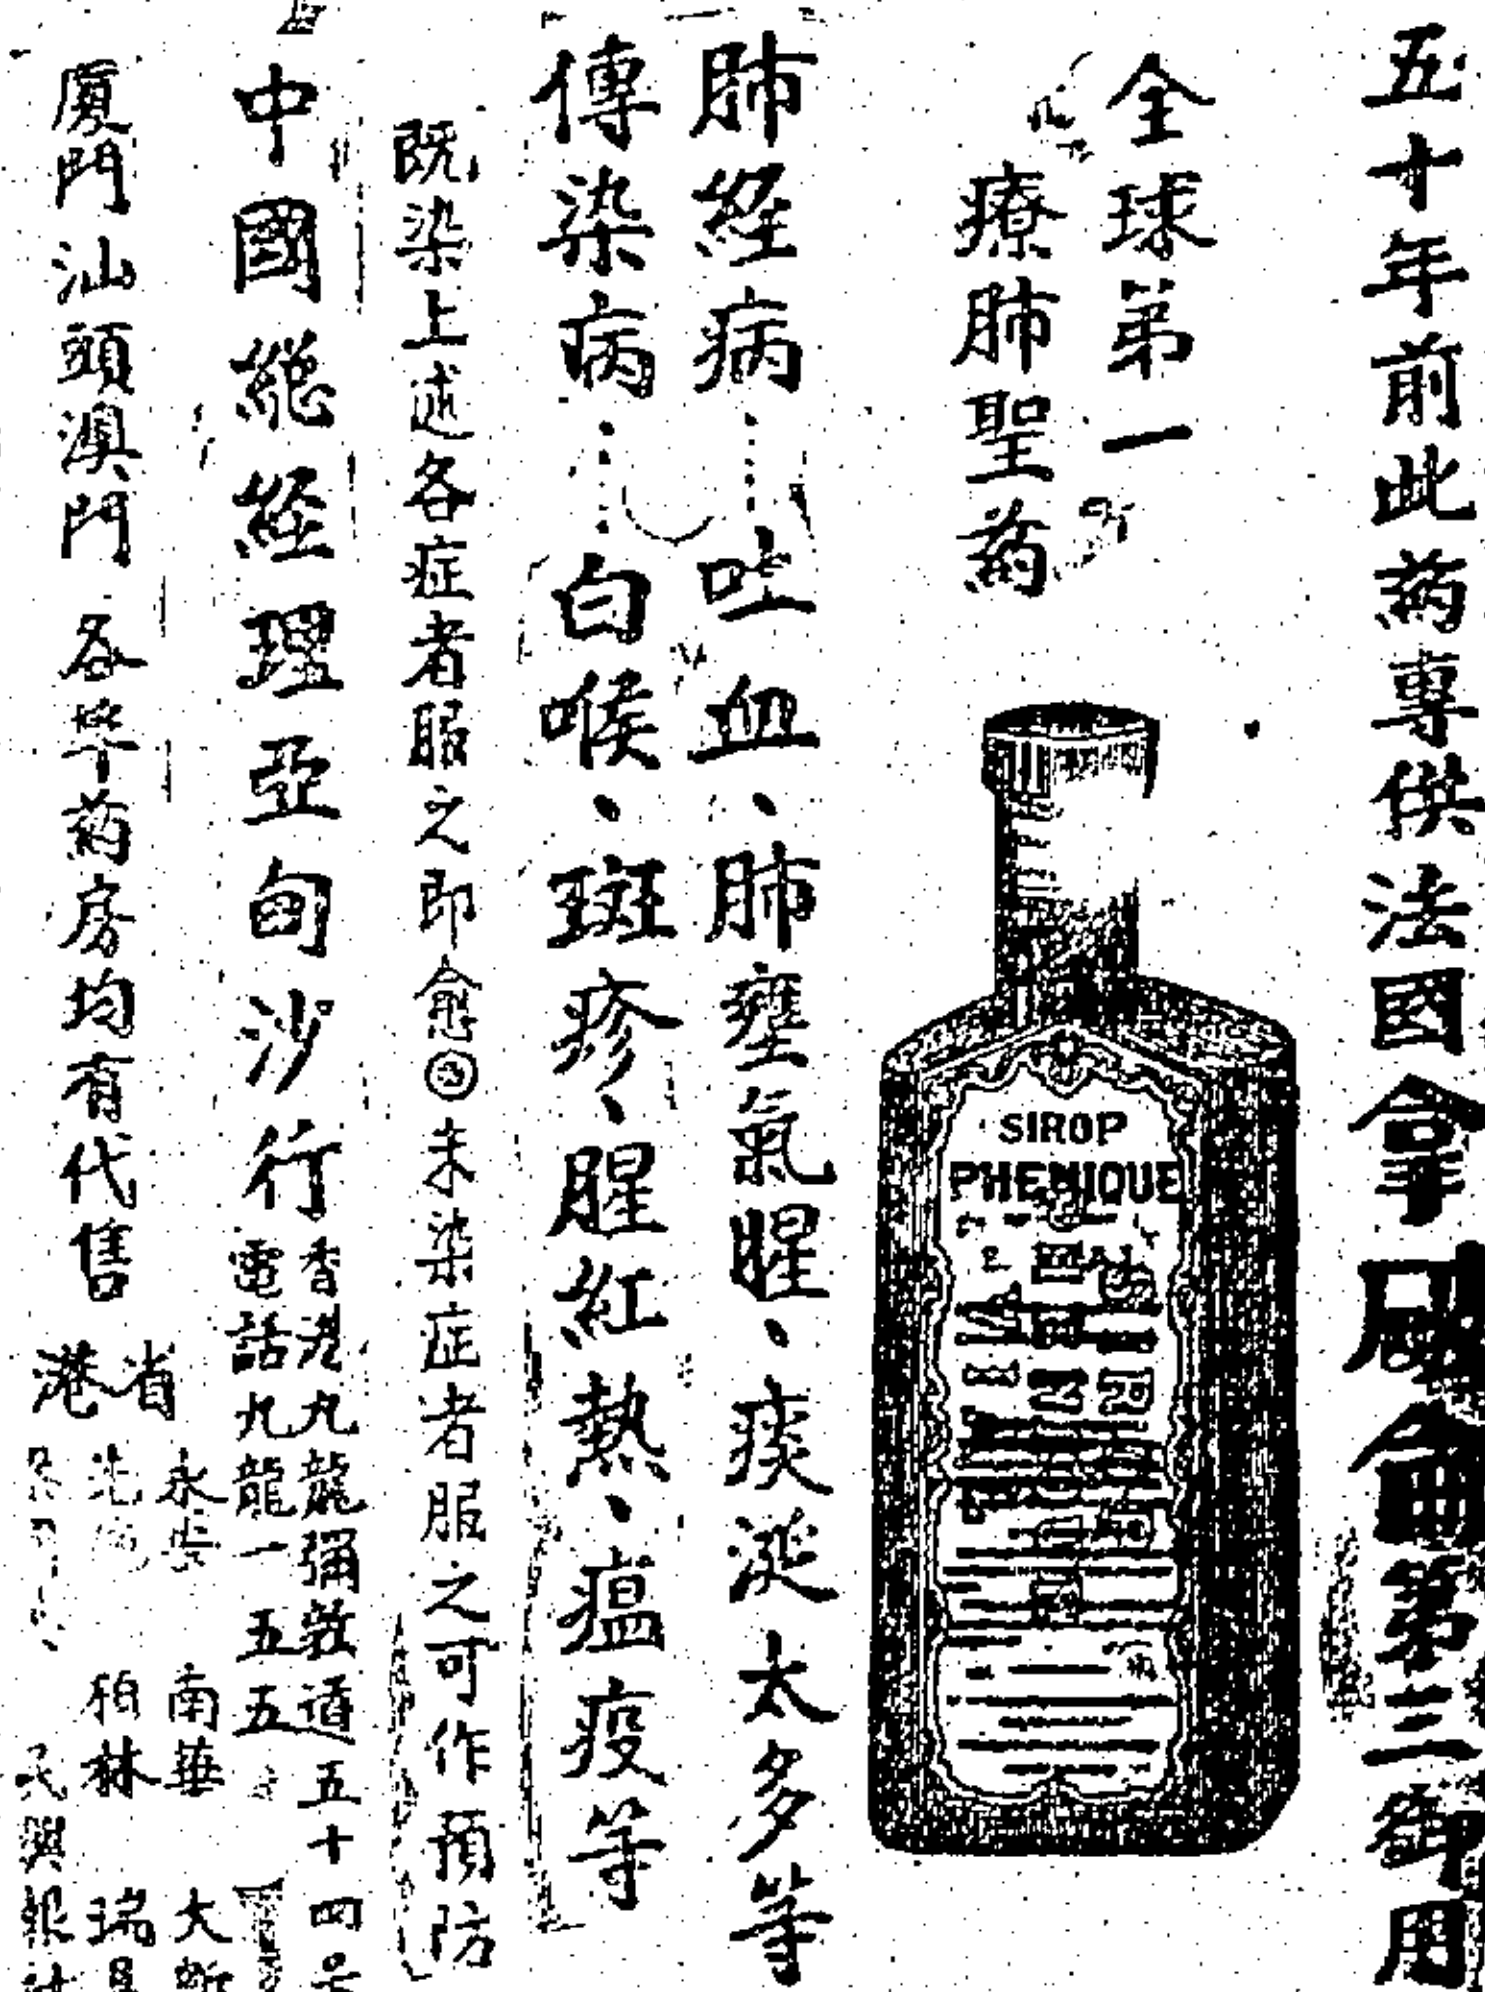 五十年前此葯專供法國拿破侖第三御用
全球第一
療肺聖葯
SIROP
PHENIQUE
肺經病……吐血、肺壅氣腥、痰涎太多等
傳染病……白喉、斑疹、腥紅熱、瘟疫等
既染上述各症者服之即愈 未染症者服之可作預防
中國總經理亞甸沙行
香港九龍彌敦道五十四号
電話九龍一五五
厦門汕頭澳門 各埠葯房均有代售
省港
永安 南華 大新
先施 栢林 瑞昌
民興報社